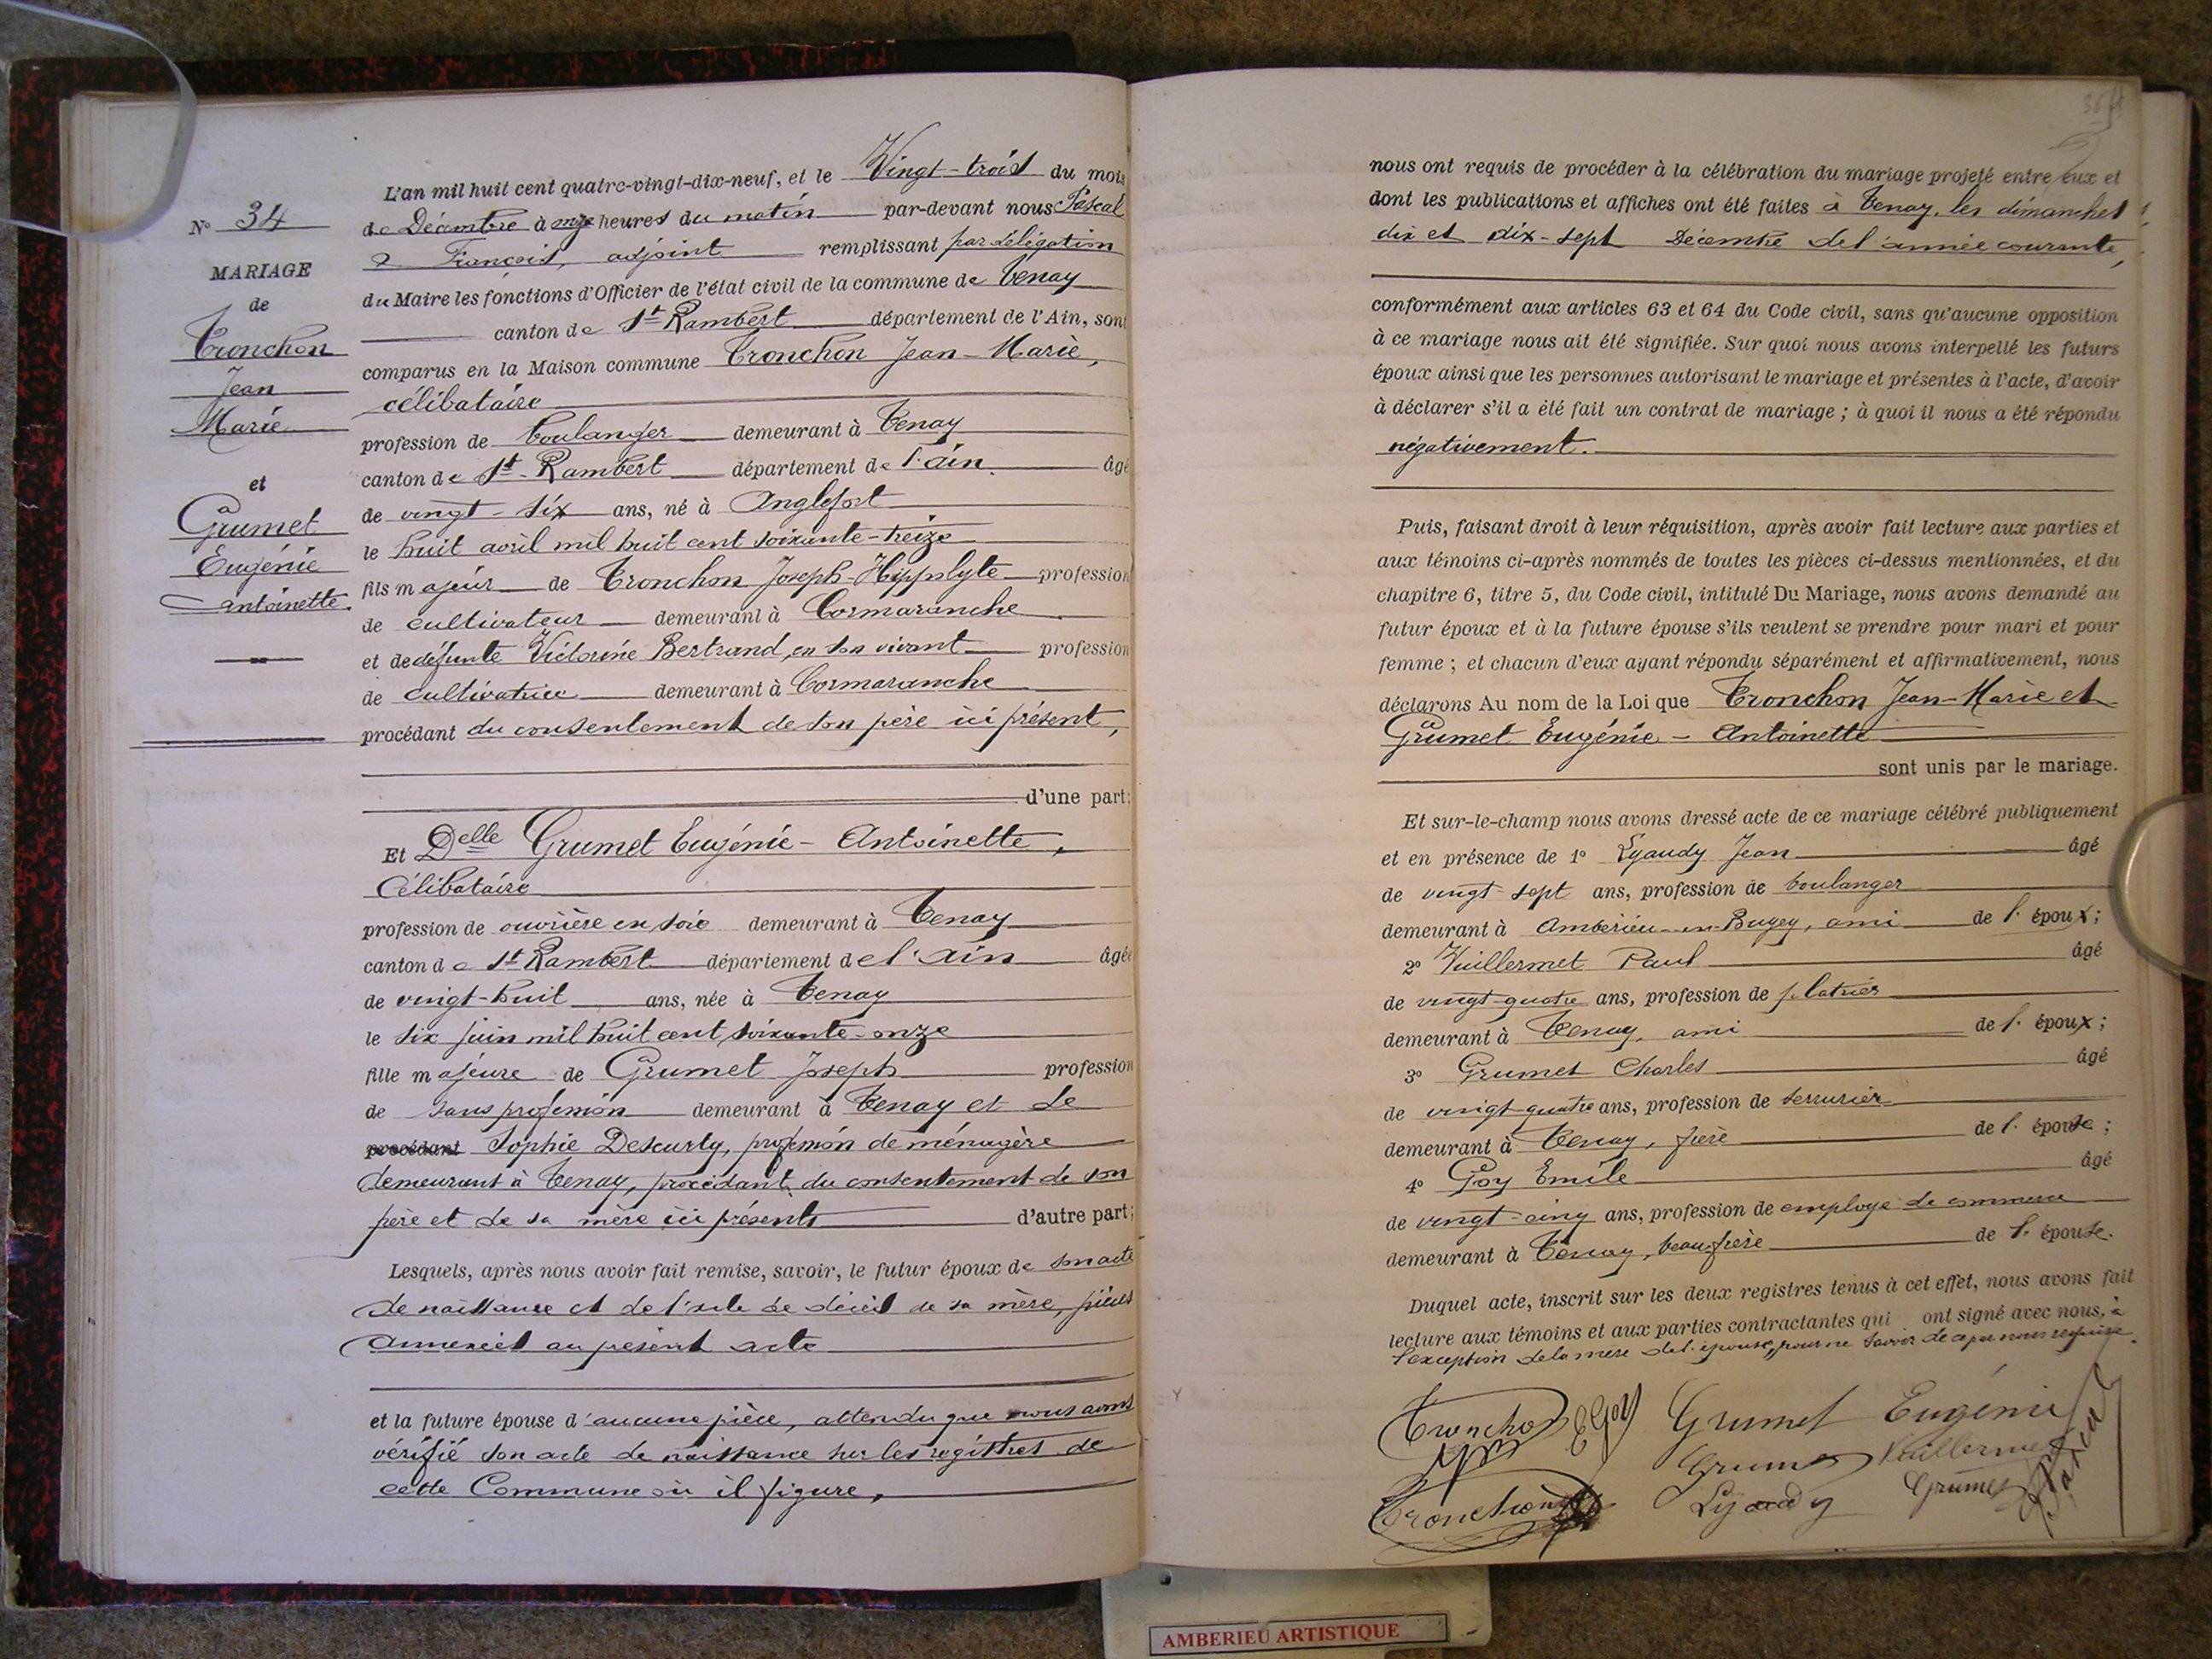 N° 34
MARIAGE
de
Tronchon
Jean
Marie
et
Grumet
Eugénie
Antoinette.
L'an mil huit cent quatre-vingt-dix-neuf, et le Vingt-trois du mois
de Décembre à onze heures du matin par-devant nous Pascal
François, adjoint remplissant par délégation
du Maire les fonctions d'Officier de l'état civil de la commune de Tenay
canton de St Rambert département de l'Ain, sont
comparus en la Maison commune Tronchon Jean-Marie,
célibataire
profession de boulanger demeurant à Tenay
canton de St-Rambert département de l'ain. âgé
de vingt-six ans, né à Anglefort
le huit avril mil huit cent soixante-treize
fils majeur de Tronchon Joseph-Hippolyte profession
de cultivateur demeurant à Cormaranche
et de défunte Victorine Bertrand, en son vivant profession
de cultivatrice demeurant à Cormaranche
procédant du consentement de son père ici présent,
d'une part:
Et Delle Grumet Eugénie-Antoinette,
Célibataire
profession de ouvrière en soie demeurant à Tenay
canton de St Rambert département de l'Ain âgée
de vingt-huit ans, née à Tenay
le six juin mil huit cent soixante-onze
fille majeure de Grumet Joseph profession
de sans profession demeurant à Tenay et de
procédant Sophie Descurty, profession de ménagère
demeurant à Tenay, procédant du consentement de son
père et de sa mère ici présents d'autre part;
Lesquels, après nous avoir fait remise, savoir, le futur époux de son acte
de naissance et de l'acte de décès de sa mère, pièces
annexées au présent acte
et la future épouse d'aucune pièce, attendu que nous avons
vérifié son acte de naissance sur les registres de
cette Commune où il figure,
nous ont requis de procéder à la célébration du mariage projeté entre eux et
dont les publications et affiches ont été faites à Tenay, les dimanches
dix et dix-sept Décembre de l'année courante,
conformément aux articles 63 et 64 du Code civil, sans qu'aucune opposition
à ce mariage nous ait été signifiée. Sur quoi nous avons interpellé les futurs
époux ainsi que les personnes autorisant le mariage et présentes à l'acte, d'avoir
à déclarer s'il a été fait un contrat de mariage; à quoi il nous a été répondu
négativement.
Puis, faisant droit à leur réquisition, après avoir fait lecture aux parties et
aux témoins ci-après nommés de toutes les pièces ci-dessus mentionnées, et du
chapitre 6, titre 5, du Code civil, intitulé Du Mariage, nous avons demandé au
futur époux et à la future épouse s'ils veulent se prendre pour mari et pour
femme; et chacun d'eux ayant répondu séparément et affirmativement, nous
déclarons Au nom de la Loi que Tronchon Jean-Marie et
Grumet Eugénie-Antoinette
sont unis par le mariage.
Et sur-le-champ nous avons dressé acte de ce mariage célébré publiquement
et en présence de 1° Lyaudy Jean âgé
de vingt-sept ans, profession de boulanger
demeurant à Ambérieu-en-Bugey, ami de l'époux;
2° Vuillermet Paul âgé
de vingt-quatre ans, profession de platrier
demeurant à Tenay, ami de l'époux;
3° Grumet Charles âgé
de vingt-quatre ans, profession de serrurier
demeurant à Tenay, frère de l'épouse;
4° Goy Emile âgé
de vingt-cinq ans, profession de employé de commerce
demeurant à Tenay, beau-frère de l'épouse.
Duquel acte, inscrit sur les deux registres tenus à cet effet, nous avons fait
lecture aux témoins et aux parties contractantes qui ont signé avec nous, à
l'exception de la mère de l'épouse, pour ne savoir de ce par nous requise.
Tronchon EGoy Grumet Eugénie
Grumet Vuillermet
Tronchon Lyaudy Grumet Pascal
AMBERIEU ARTISTIQUE